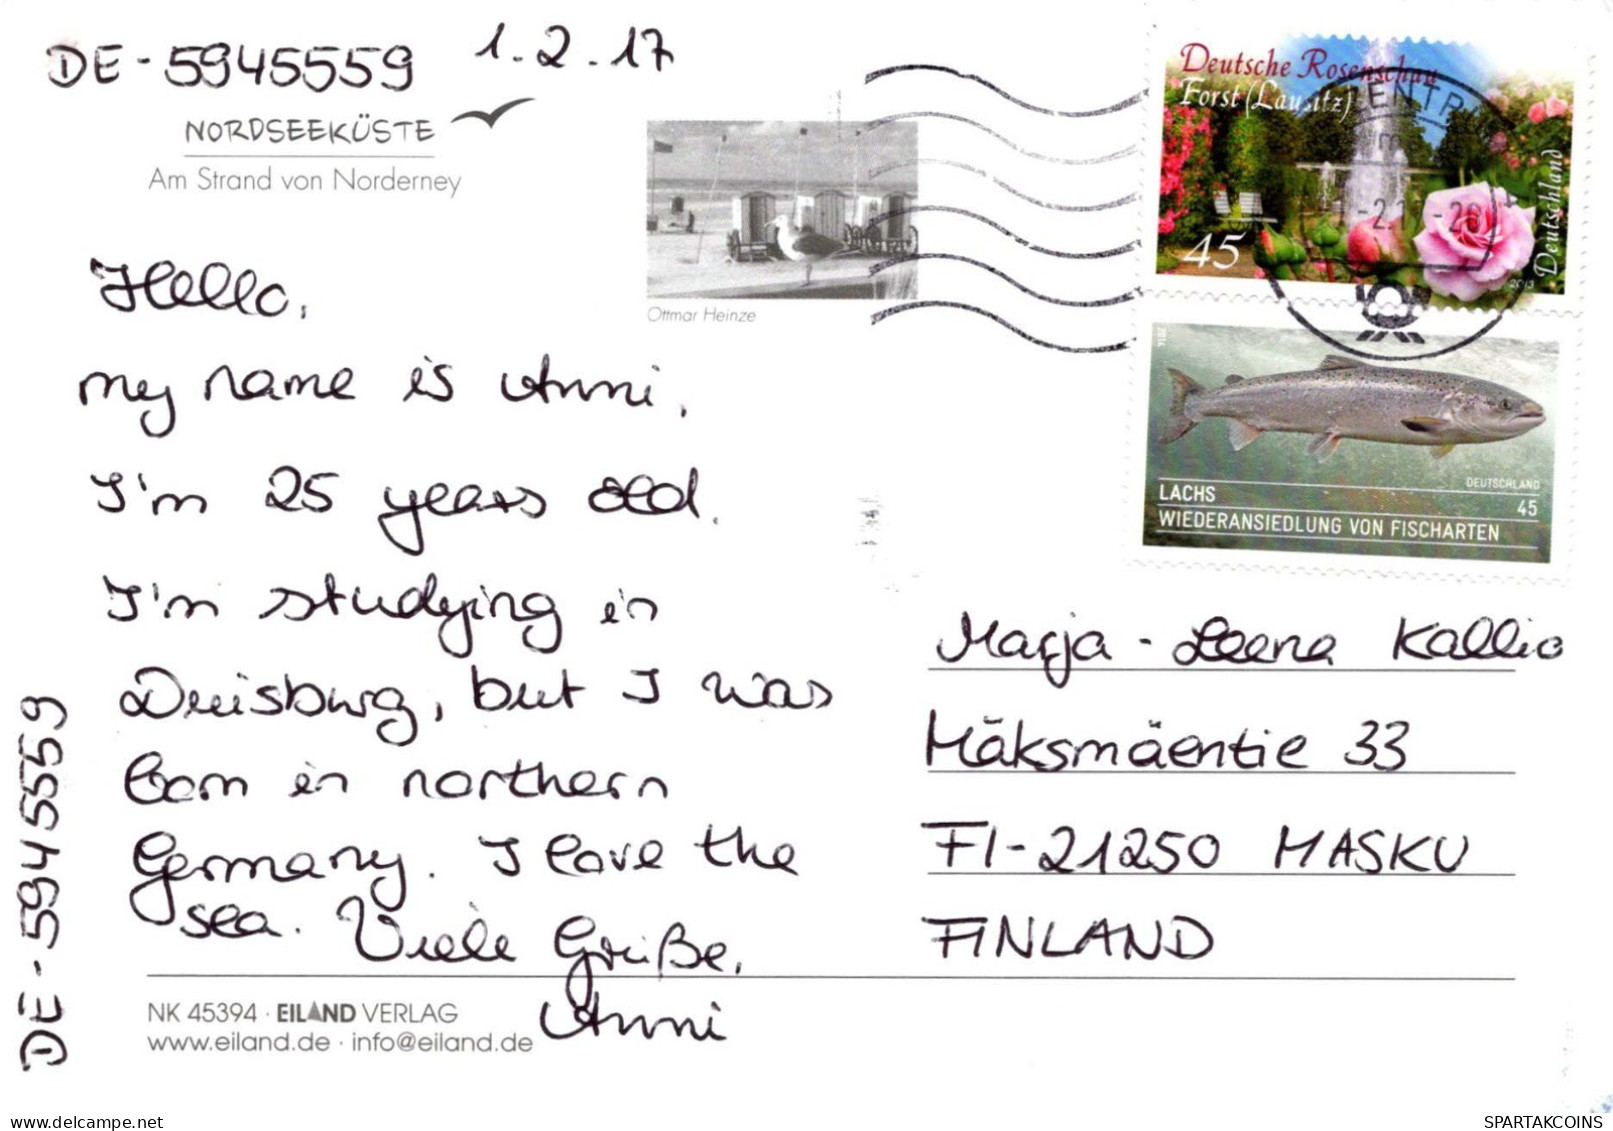 DE-5945559 1.2.17
NORDSEEKÜSTE
Am Strand von Norderney
Ottmar Heinze
Hello,
my name is Anni,
I'm 25 years old.
I'm studying in
Duisburg, but I was
born in northern
Germany. I love the
sea. Viele Grüße,
Anni
NK 45394 · EILAND VERLAG
www.eiland.de · info@eiland.de
DE-5945559
Deutsche Rosenschau
Forst (Lausitz)
45
Deutschland
2013
2014
DEUTSCHLAND
LACHS 45
WIEDERANSIEDLUNG VON FISCHARTEN
Marja-Leena Kallio
Mäksmäentie 33
FI-21250 MASKU
FINLAND
SPARTAKCOINS